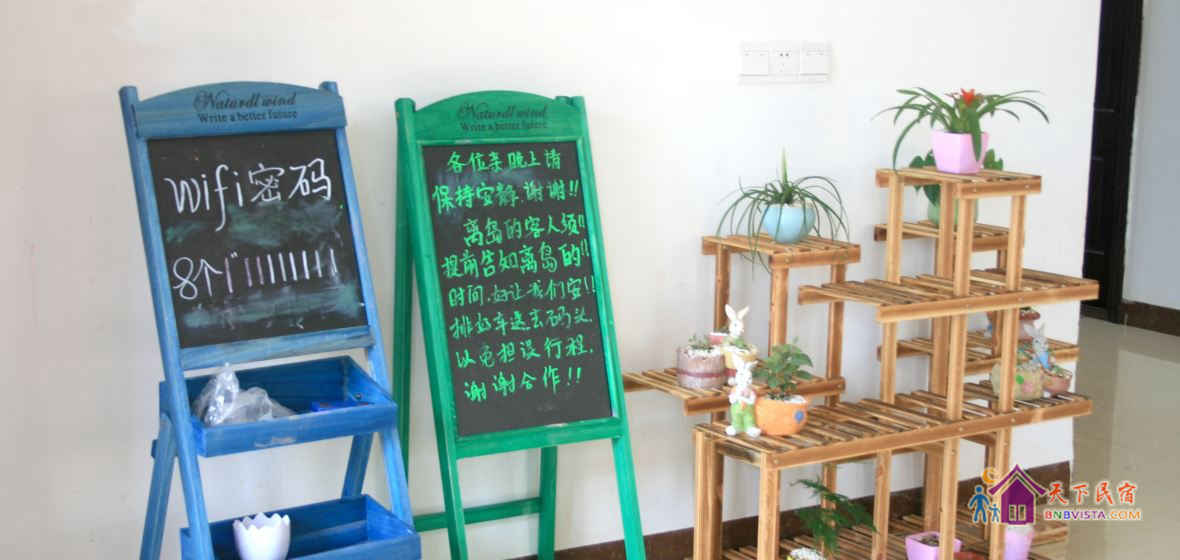 Naturdl wind
Write a better future
wifi密码
8个1
Naturdl wind
Write a better future
各位亲晚上请
保持安静.谢谢!!
离岛的客人须!!
提前告知离岛的!!
时间.好让我们安!!
排好车送去码头.
以免担误行程.
谢谢合作!!
天下民宿
BNBVISTA.COM